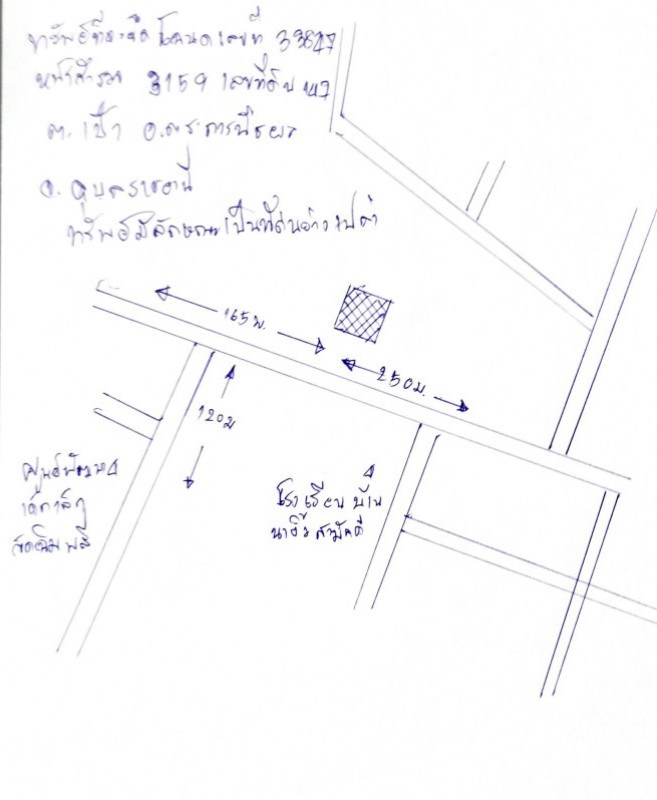 ทรัพย์ที่จะยึด โฉนดเลขที่ 33827
หน้าสำรวจ 3159 เลขที่ดิน 147
ต.เป้า อ.ตระการพืชผล
จ.อุบลราชธานี
ทรัพย์มีลักษณะเป็นที่ดินว่างเปล่า
165 ม.
250ม.
120ม
ศูนย์พัฒนา
เด็กเล็ก
โรงเรียนบ้าน
สามัคคี